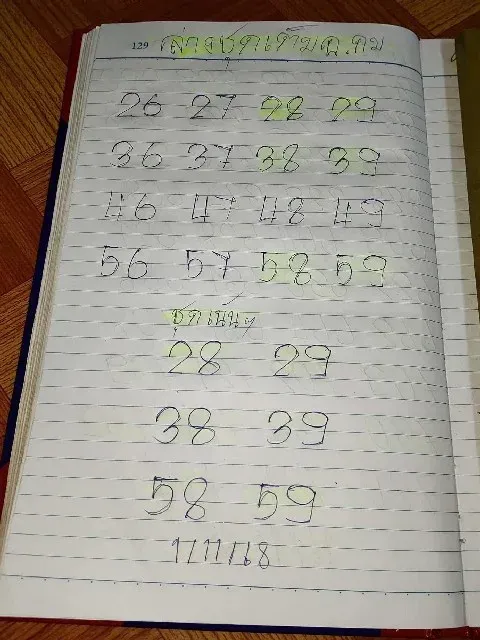 129 ล่างชุดเต็มฉ.ถม
26 27 28 29
36 37 38 39
46 47 48 49
56 57 58 59
ชุดเน้นๆ
28 29
38 39
58 59
1/11/68